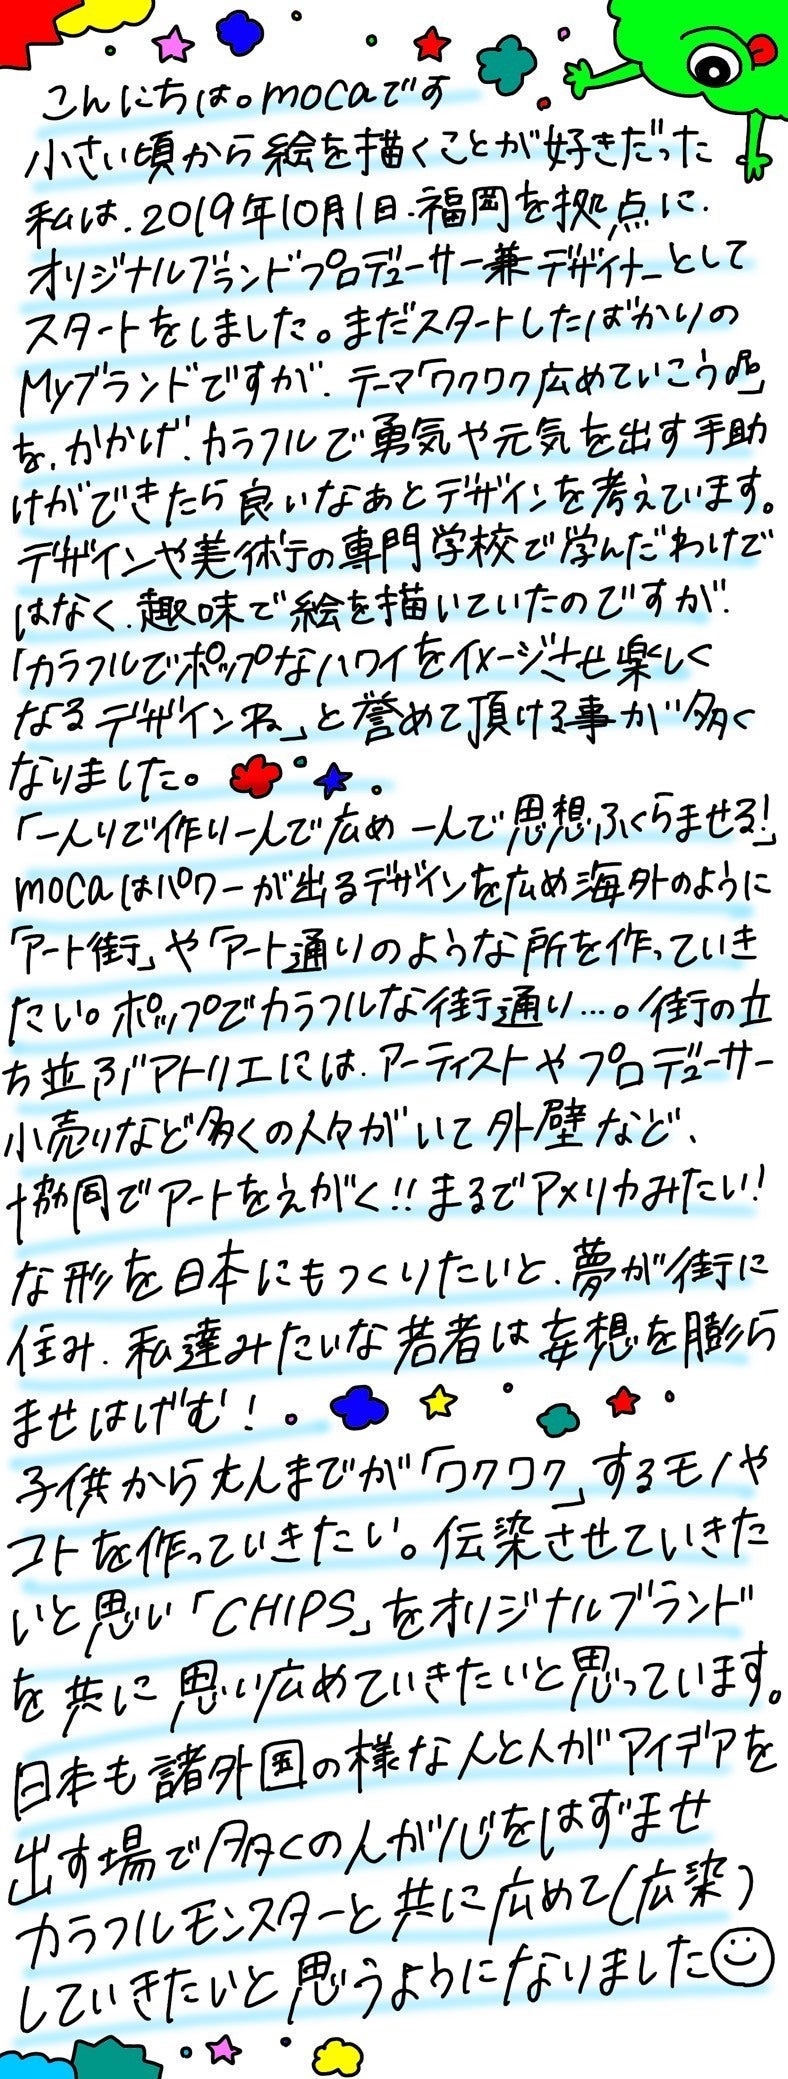 こんにちは。mocaです
小さい頃から絵を描くことが好きだった
私は、2019年10月1日、福岡を拠点に、
オリジナルブランドプロデューサー兼デザイナーとして
スタートをしました。まだスタートしたばかりの
Myブランドですが、テーマ「ワクワク広めていこう♪」
を、かかげ、カラフルで勇気や元気を出す手助
けができたら良いなぁとデザインを考えています。
デザインや美術の専門学校で学んだわけで
はなく、趣味で絵を描いていたのですが、
「カラフルでポップなハワイをイメージさせ楽しく
なるデザインね」と誉めて頂ける事が多く
なりました。
「一人りで作り一人で広め 一人で思想ふくらませる!」
mocaはパワーが出るデザインを広め海外のように
「アート街」や「アート通りのような所を作っていき
たい。ポップでカラフルな街通り…。街の立
ち並ぶアトリエには、アーティストやプロデューサー
小売りなど多くの人々がいて外壁など、
協同でアートをえがく!!まるでアメリカみたい!
な形を日本にもつくりたいと、夢が街に
住み、私達みたいな若者は妄想を膨ら
ませはげむ!
子供から大人までが「ワクワク」するモノや
コトを作っていきたい。伝染させていきた
いと思い「CHIPS」をオリジナルブランド
を共に思い広めていきたいと思っています。
日本も諸外国の様な人と人がアイデアを
出す場で多くの人が心をはずませ
カラフルモンスターと共に広めて(広染)
していきたいと思うようになりました